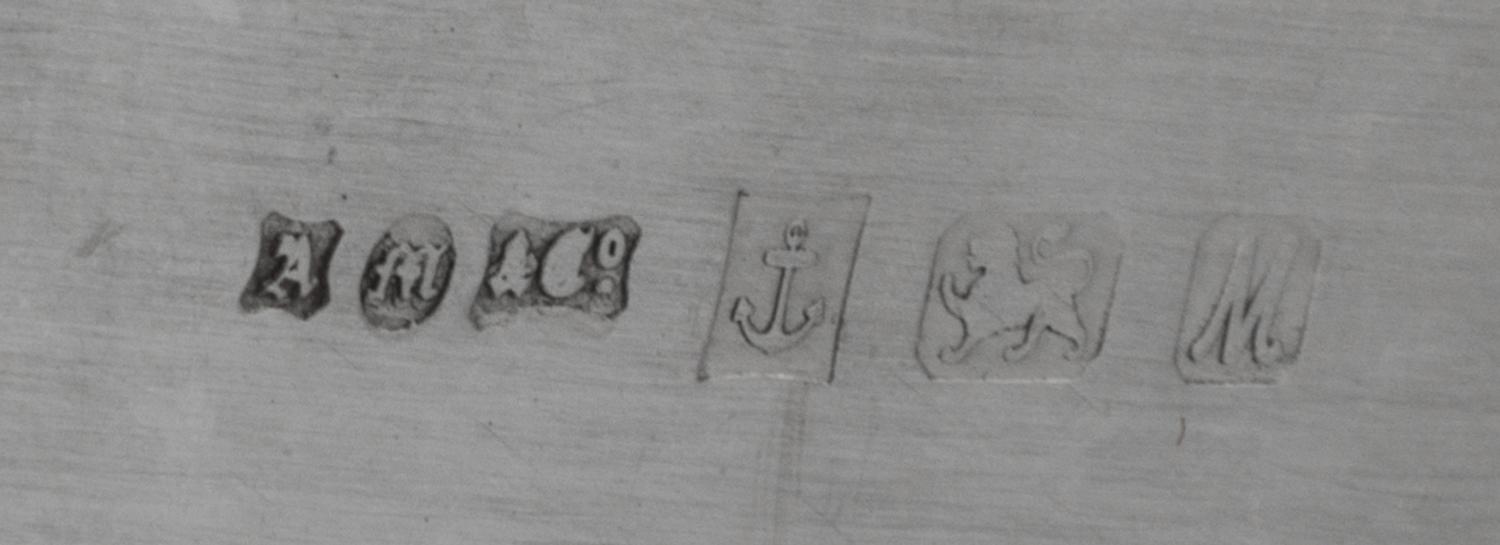 A m & Cº M